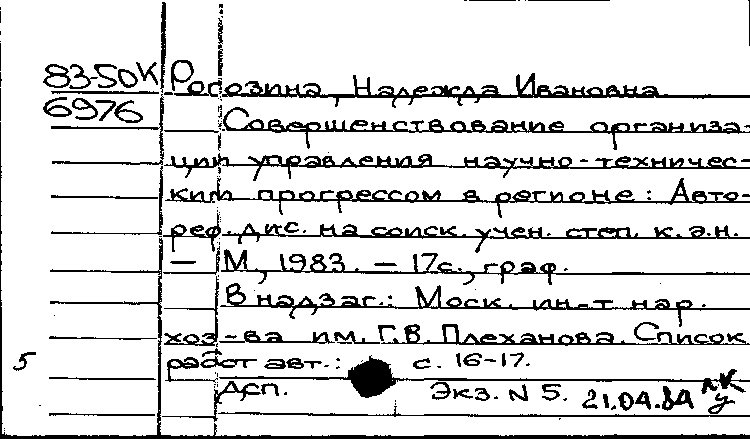 83-50К Рогозина, Надежда Ивановна.
6976
Совершенствование организа-
ции управления научно-техничес-
ким прогрессом в регионе: Авто-
реф. дис. на соиск. учен. степ. к.э.н.
— М., 1983. — 17с., граф.
В надзаг.: Моск. ин-т нар.
хоз-ва им. Г.В. Плеханова. Список
5 работ авт.: с. 16-17.
Дсп. Экз. N 5. 21.04.84